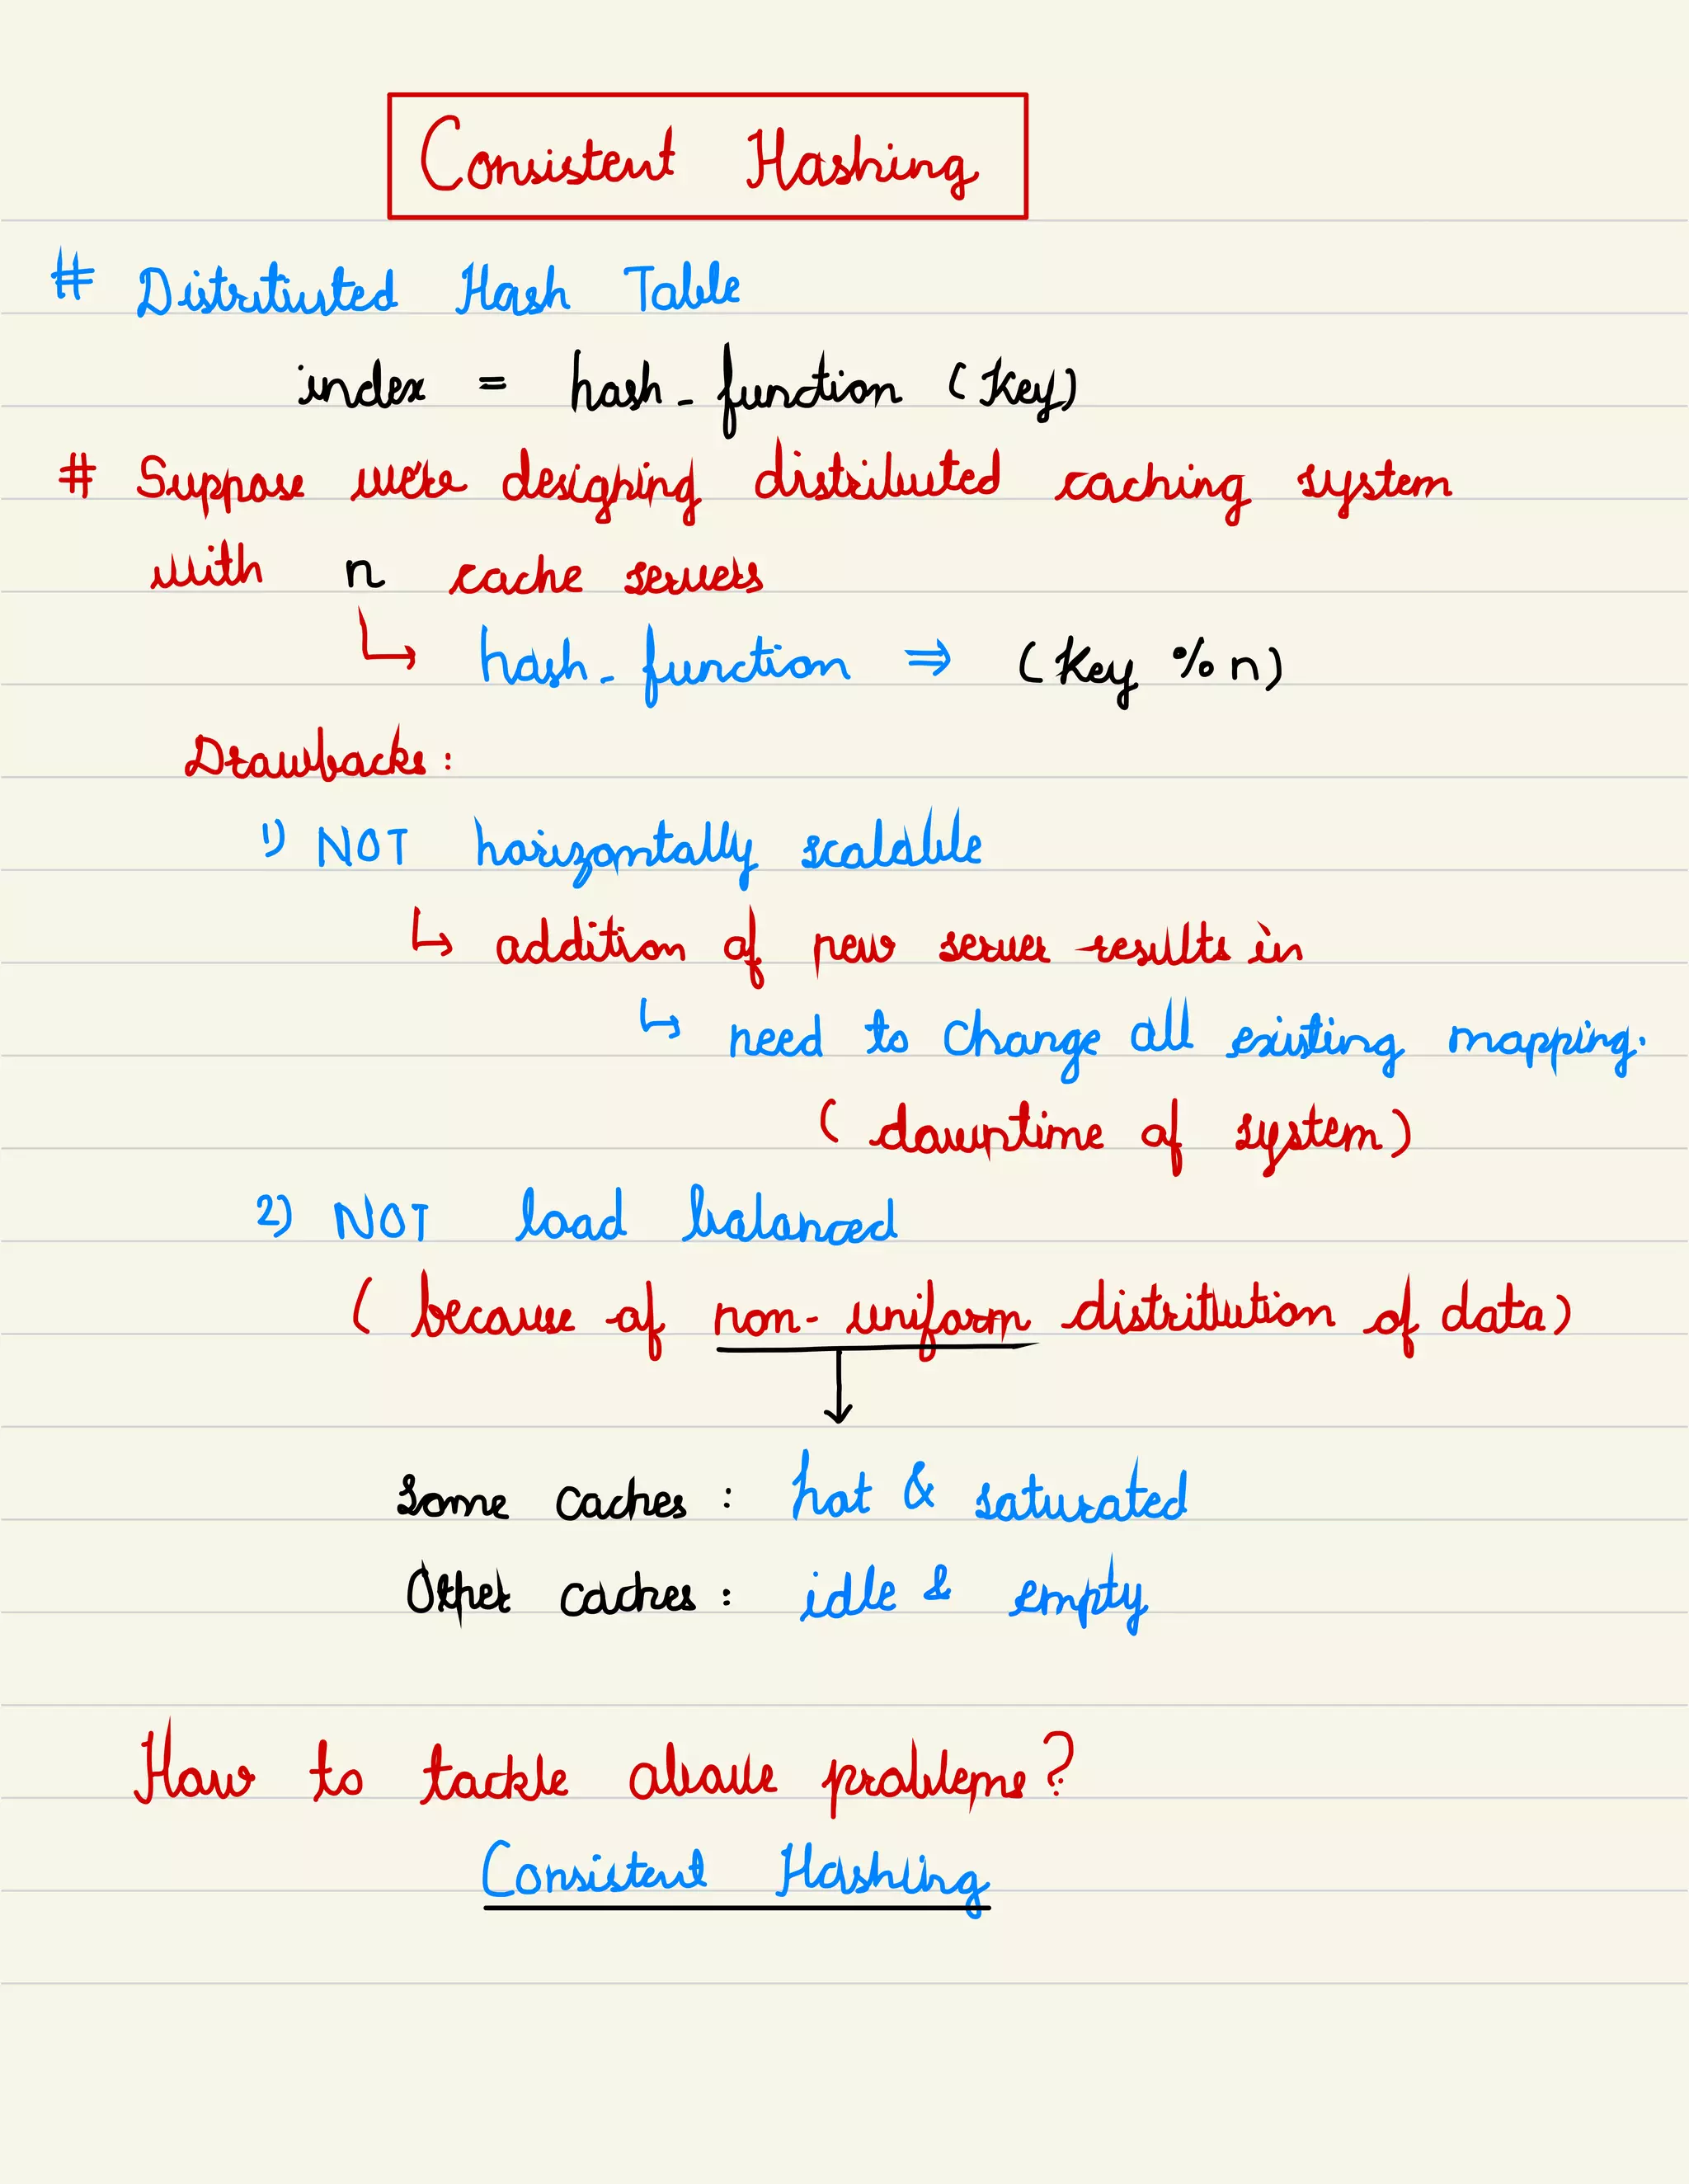 Consistent Hashing
# Distributed Hash Table
index = hash_function (Key)
# Suppose we're designing distributed caching system
with n cache servers
↳ hash_function ⇒ (Key % n)
Drawbacks:
1) NOT horizontally scalable
↳ addition of new server results in
↳ need to change all existing mapping.
(downtime of system)
2) NOT load balanced
(because of non-uniform distribution of data)
↓
Some caches: hot & saturated
Other caches: idle & empty
How to tackle above problems?
Consistent Hashing